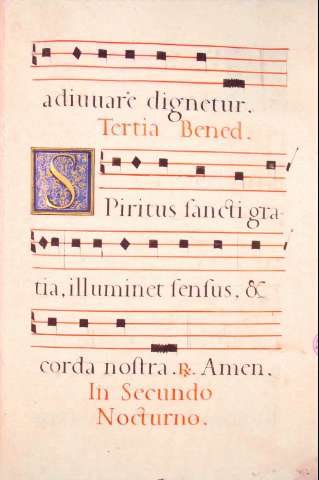 adiuuare dignetur.
Tertia Bened.
SPiritus sancti gra-
tia, illuminet sensus, &
corda nostra. ℟. Amen.
In Secundo
Nocturno.